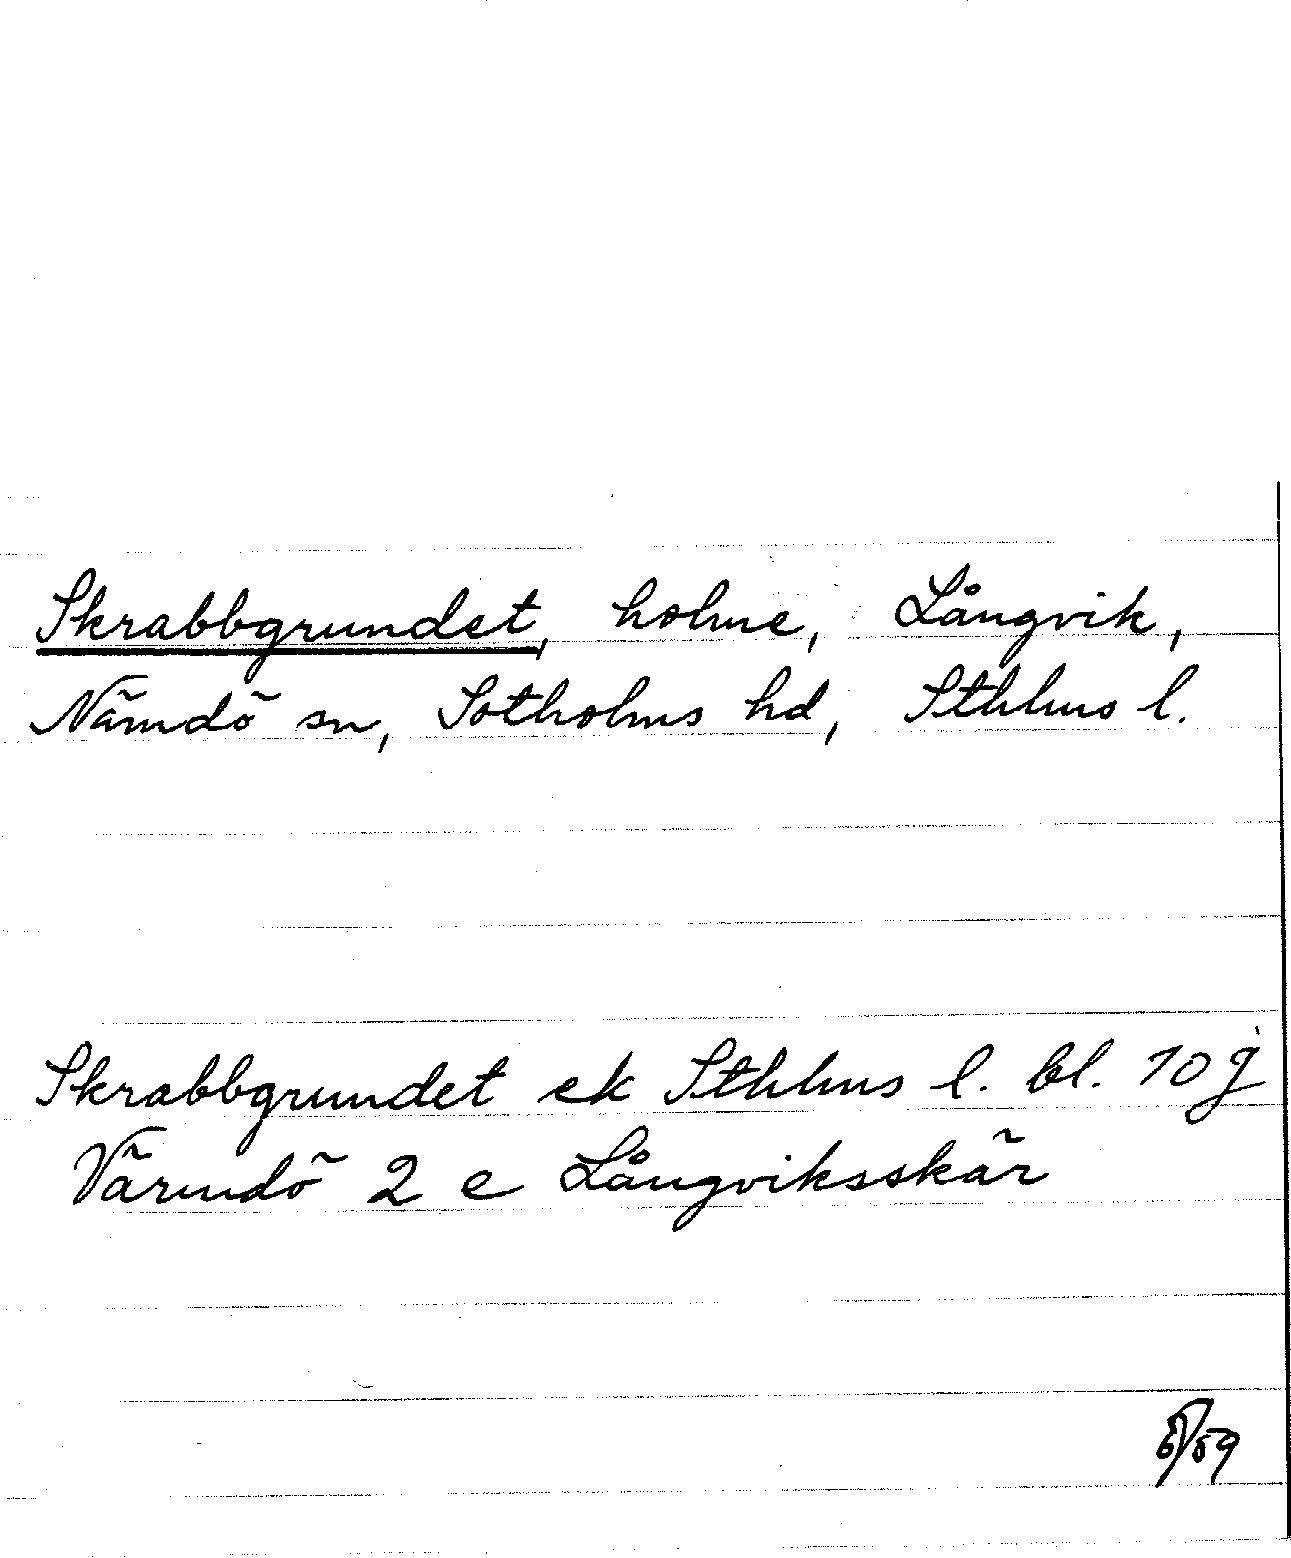 Skrabbgrundet, holme, Långvik,
Nämdö sn, Sotholms hd, Sthlms l.
Skrabbgrundet ek Sthlms l. bl. 10 J
Värmdö 2 e Långviksskär